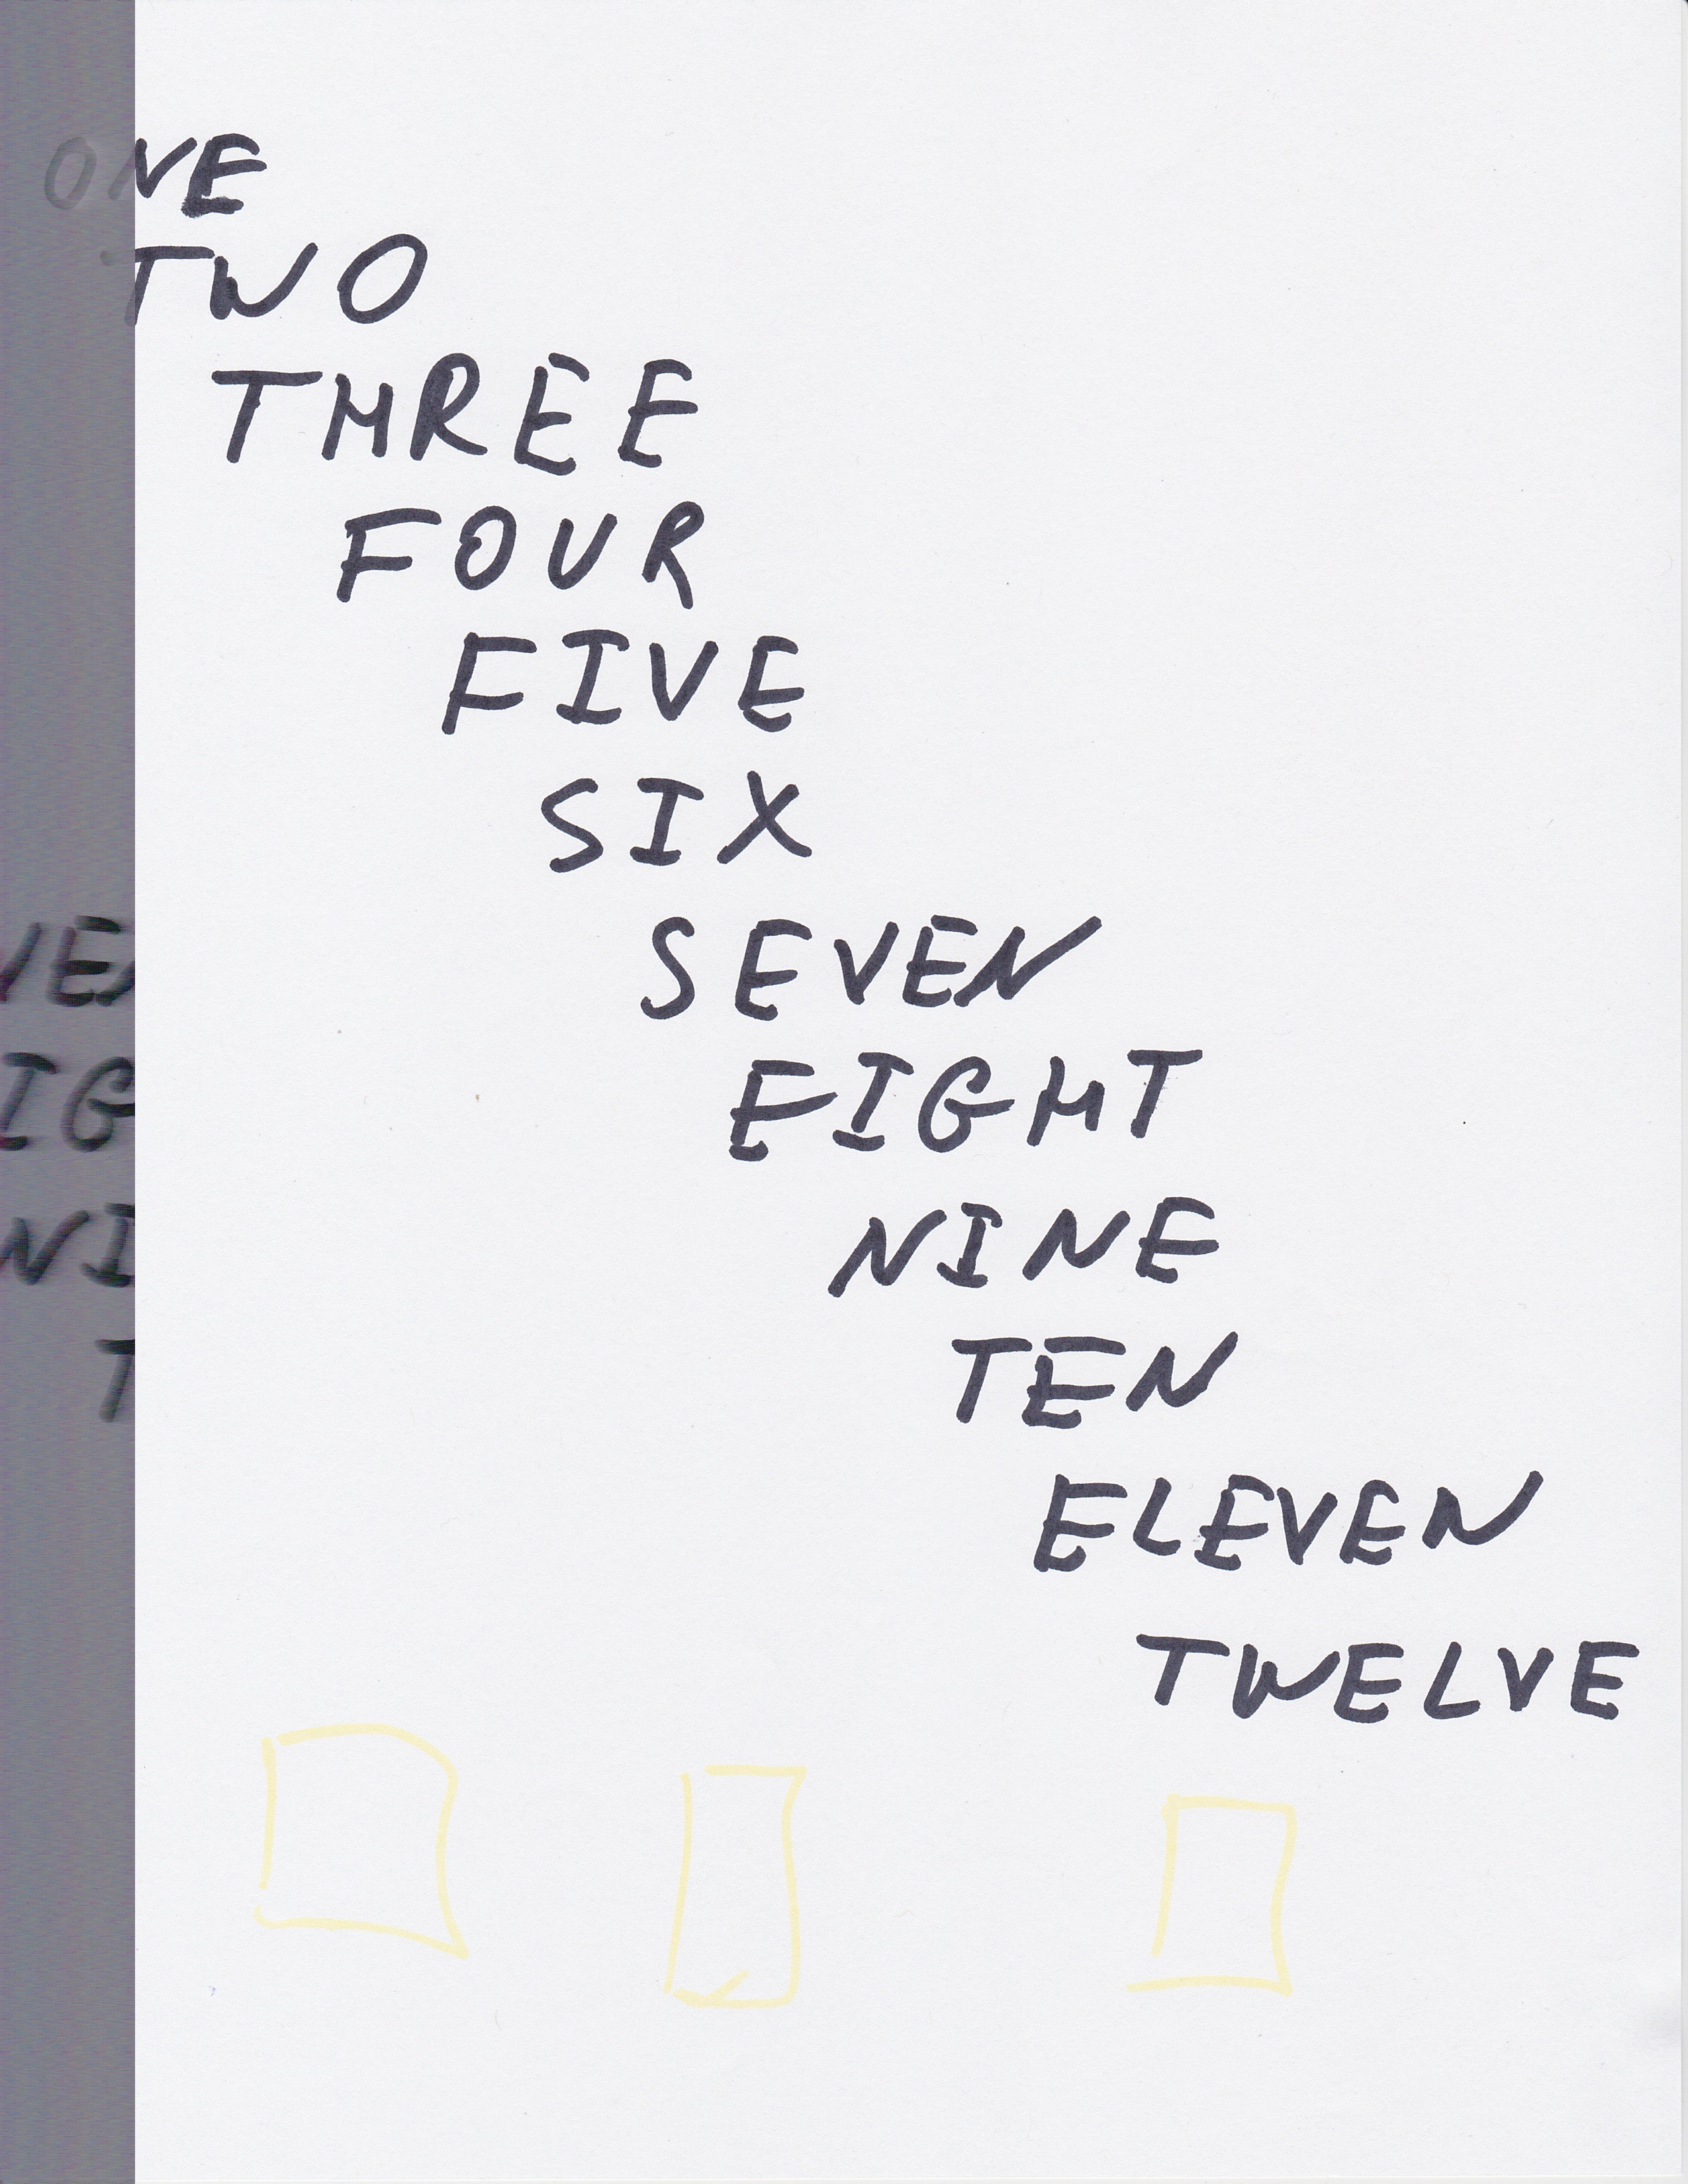 ONE
TWO
THREE
FOUR
FIVE
SIX
SEVEN
EIGHT
NINE
TEN
ELEVEN
TWELVE
VEN
IG
NI
T